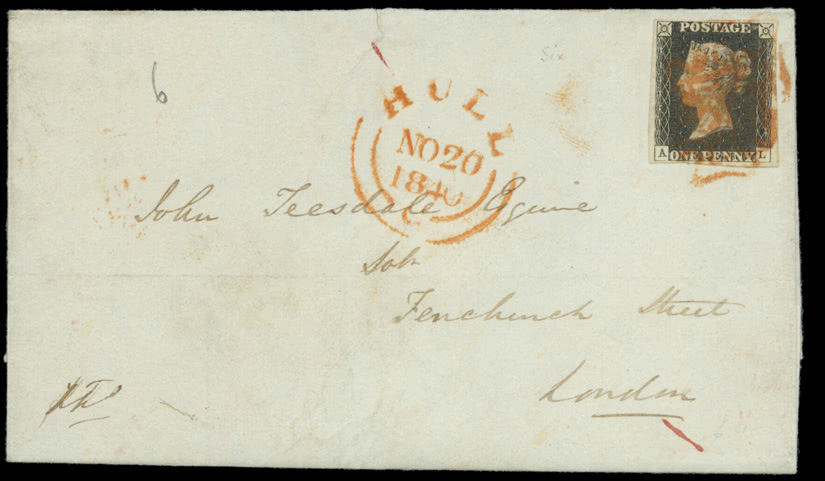 POSTAGE
A ONE PENNY L
Six
6
HULL
NO 20
1840
C
John Teesdale Esquire
Solr
Fenchurch Street
London